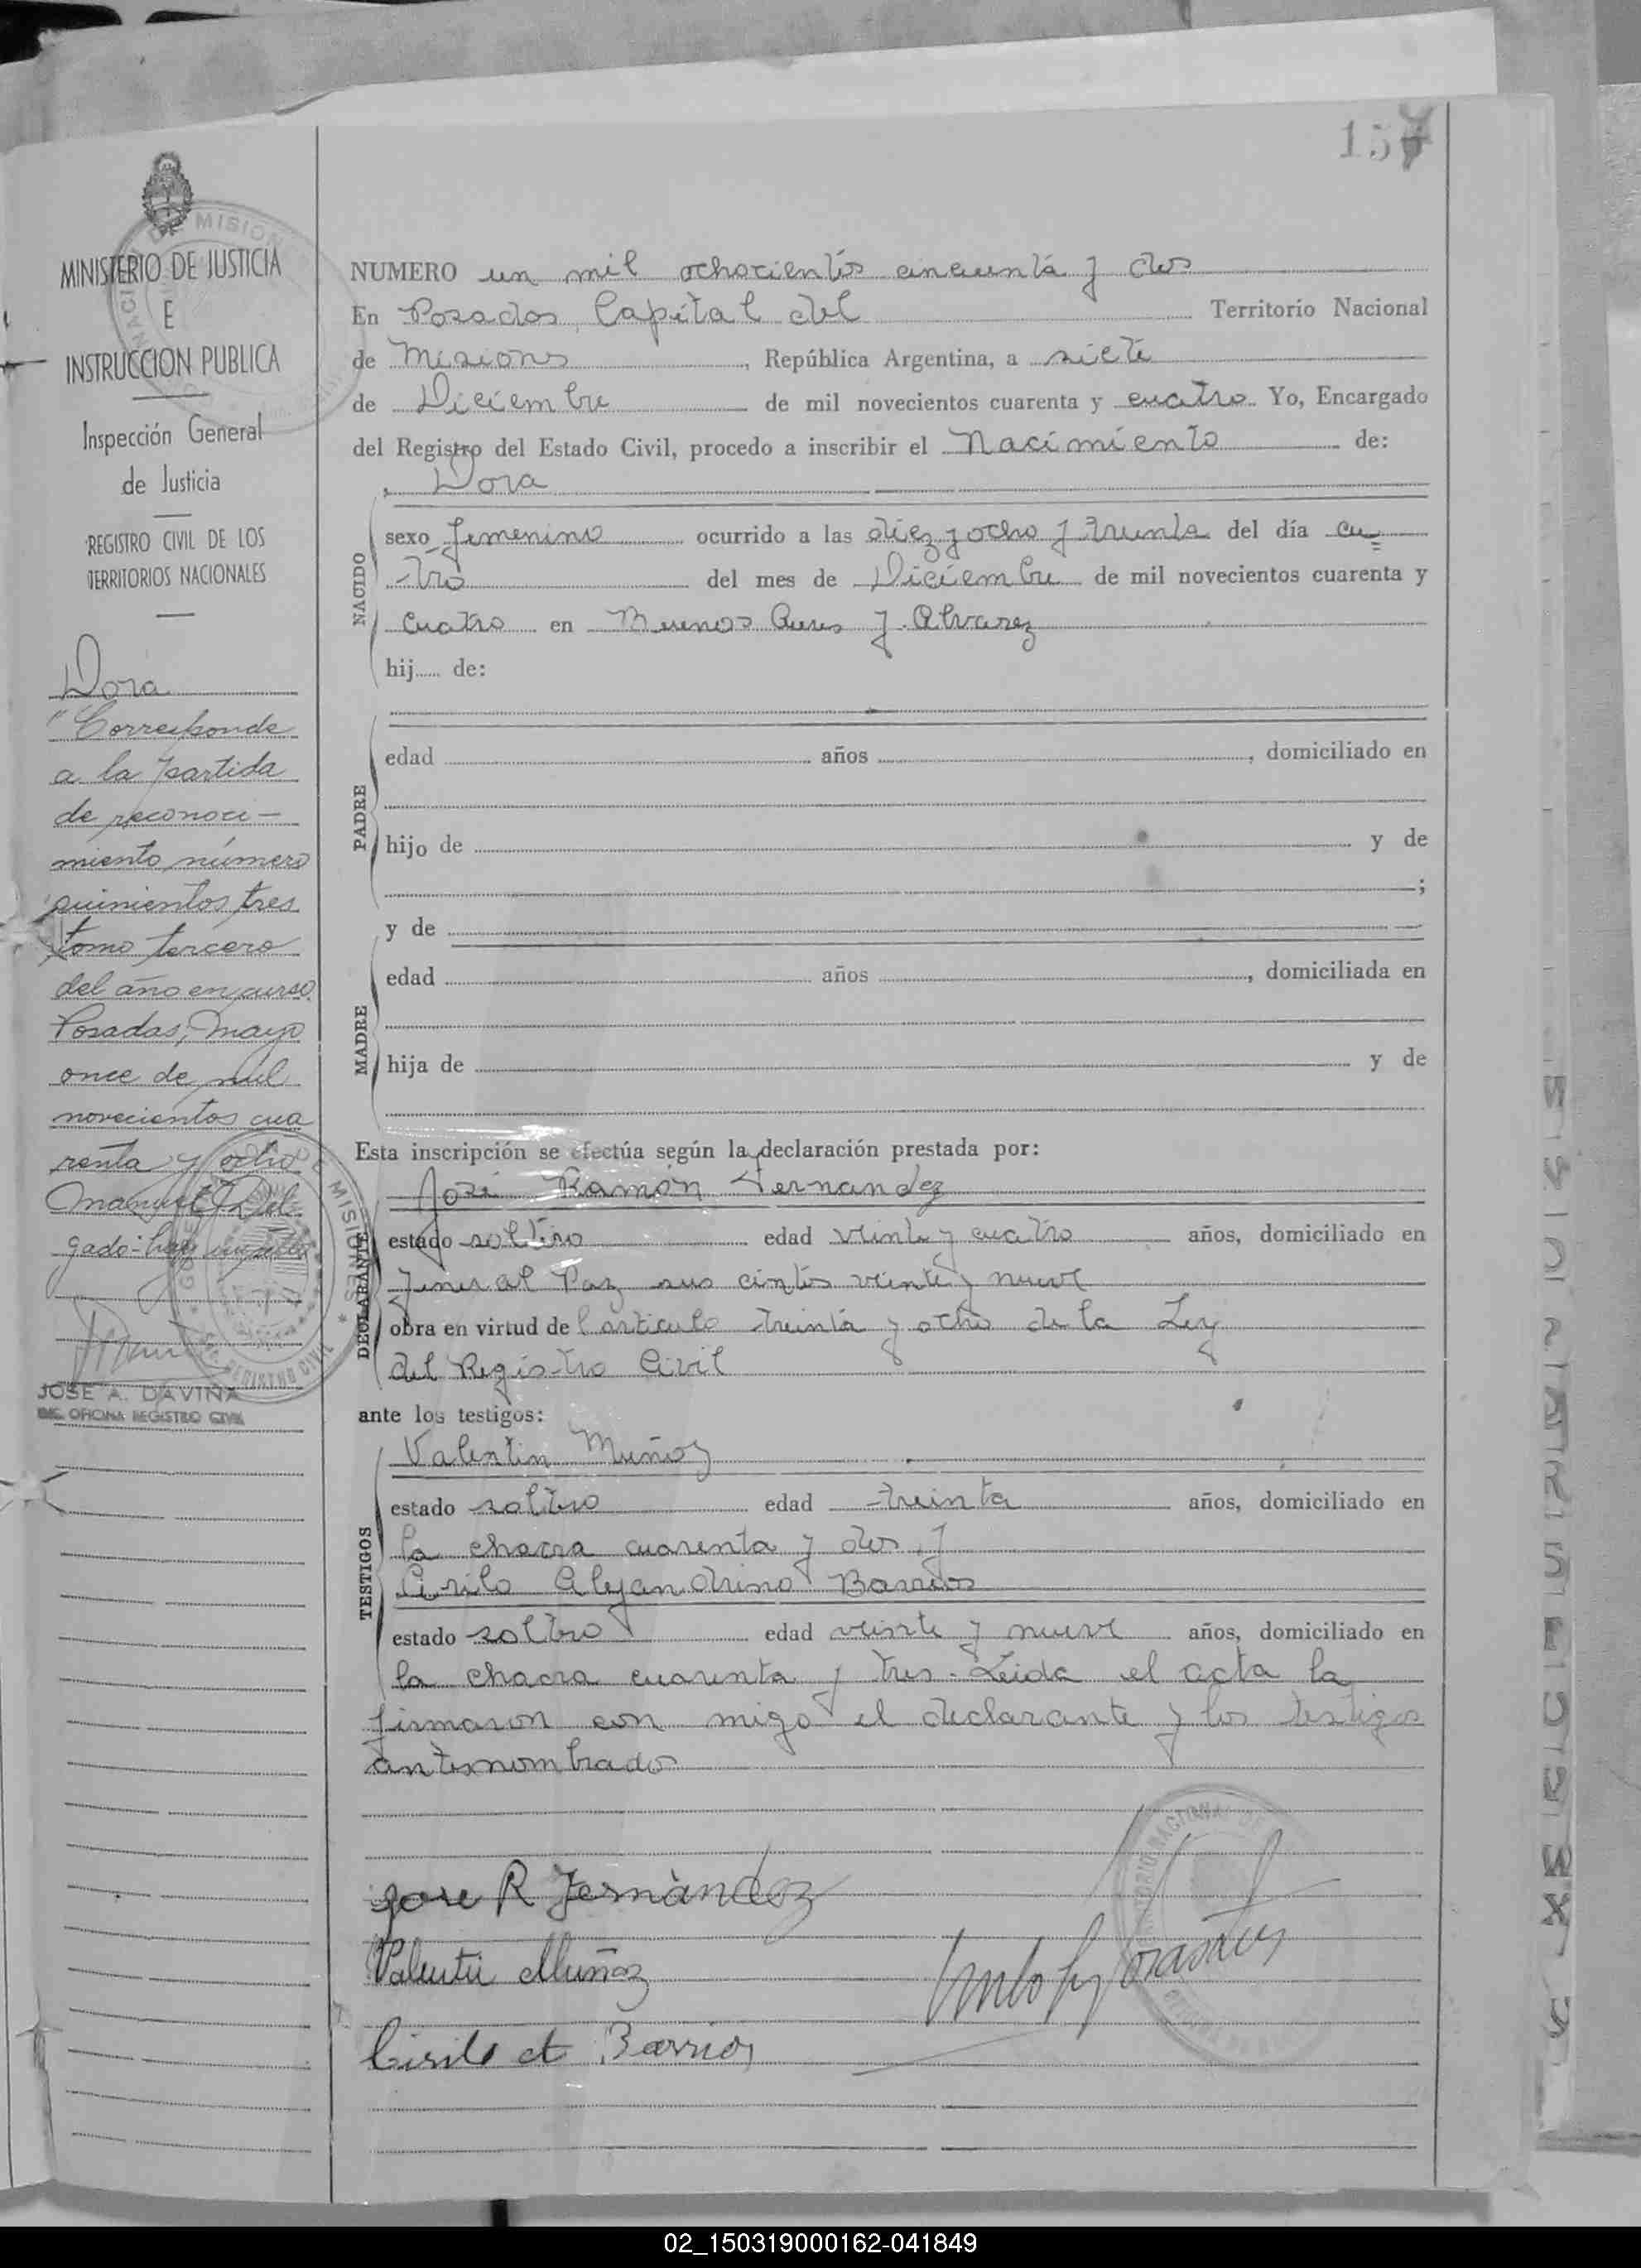 157
MINISTERIO DE JUSTICIA
E
INSTRUCCION PUBLICA
Inspección General
de Justicia
REGISTRO CIVIL DE LOS
TERRITORIOS NACIONALES
Dora
"Corresponde
a la partida
de reconoci-
miento número
quinientos tres
tomo tercero
del año en curso.
Posadas, Mayo
once de mil
novecientos cua
renta y ocho
Manuel Del
gado-
JOSE A. DAVIÑA
ENC. OFICINA REGISTRO CIVIL
NUMERO un mil ochocientos cincuenta y dos
En Posadas, Capital del Territorio Nacional
de Misiones, República Argentina, a siete
de Diciembre de mil novecientos cuarenta y cuatro Yo, Encargado
del Registro del Estado Civil, procedo a inscribir el Nacimiento de:
Dora
NACIDO
sexo femenino ocurrido a las diez y ocho y treinta del día cu=
tro del mes de Diciembre de mil novecientos cuarenta y
cuatro en Buenos Aires y Alvarez
hij de:
PADRE
edad años, domiciliado en
hijo de y de
;
y de
MADRE
edad años, domiciliada en
hija de y de
Esta inscripción se efectúa según la declaración prestada por:
José Ramón Fernandez
DECLARANTE
estado soltero edad veinte y cuatro años, domiciliado en
Jeneral Paz sus cientos veinte y nueve
obra en virtud del articulo treinta y ocho de la Ley
del Registro Civil
ante los testigos:
Valentin Muñoz
TESTIGOS
estado soltero edad treinta años, domiciliado en
la chacra cuarenta y dos y
Cirilo Alejandrino Barrios
estado soltero edad veinte y nueve años, domiciliado en
la chacra cuarenta y tres. Leida el acta la
firmaron con migo el declarante y los testigos
antesnombrados
Jose R Fernàndez
Valentin Muñoz
Cirilo A Barrios
02_150319000162-041849